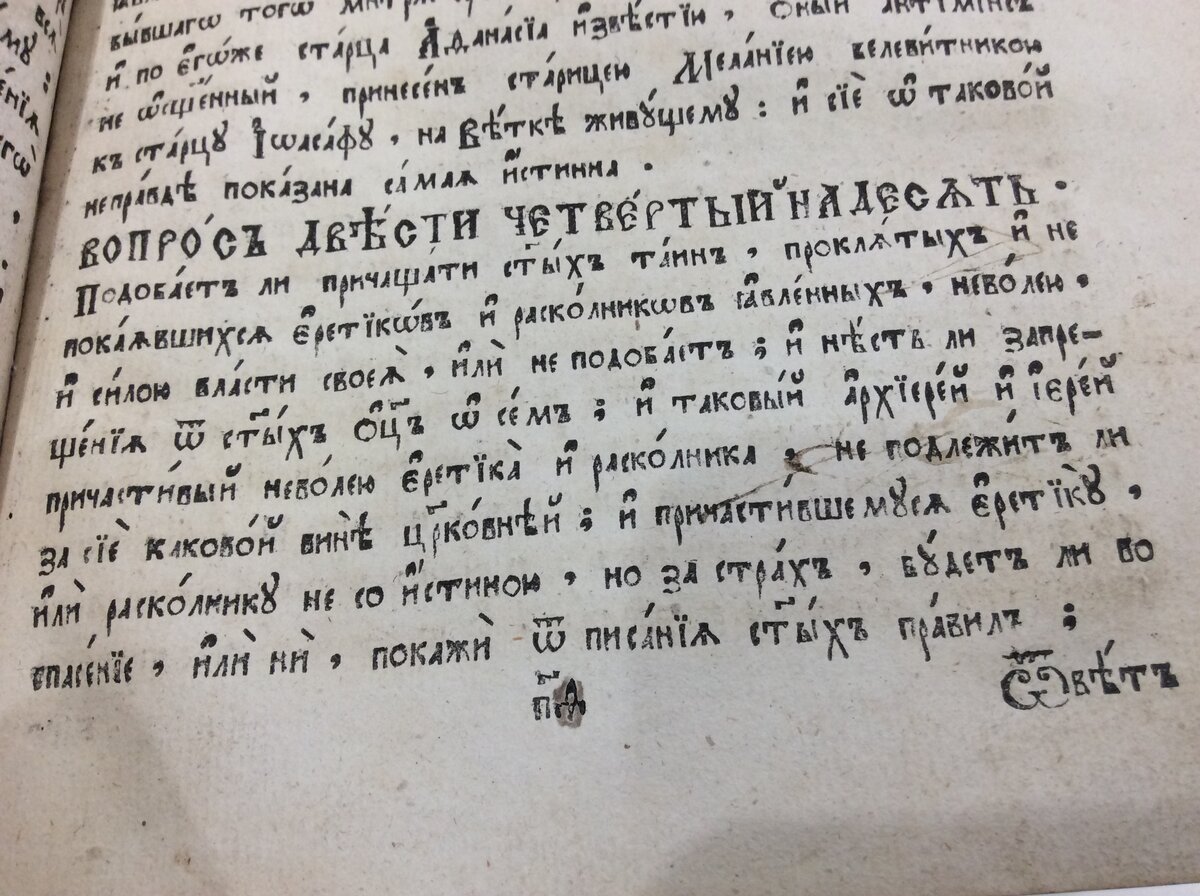 бы́вшагѡ тогѡ̀
и҆ по є҆гѡ́же ста́рца А҆ѳана́сїа и҆звѣ́стїи, ѻ҆ный антїмі́нсъ
не ѡ҆сщ҃е́нный, принесе́нъ ста́рицею Мела́нїею белеви́тникою
къ ста́рцꙋ І҆ѡаса́фꙋ, на Вѣ́ткѣ живꙋ́щемꙋ: и҆ сїѐ ѡ҆ таково́й
непра́вдѣ пока́зана са́мая и҆́стинна.
ВОПРО́СЪ ДВѢ́СТИ ЧЕТВЕ́РТЫЙ НА́ДЕСѦТЬ.
Подоба́етъ ли причаща́ти ст҃ы́хъ та́инъ, проклѧ́тыхъ и҆ не
пока́ѧвшихсѧ є҆ретїкѡ́въ и҆ раско́лникѡвъ ꙗ҆вле́нныхъ, нево́лею,
и҆ си́лою вла́сти своеѧ̀, и҆лѝ не подоба́етъ; и҆ нѣ́сть ли запре-
ще́нїѧ ѿ ст҃ы́хъ ѻ҆ц҃ъ ѡ҆ се́мъ; и҆ таковы́й а҆рхїере́й и҆ і҆ере́й
причасти́вый нево́лею є҆ретїка̀ и҆ раско́лника, не подлежи́тъ ли
за сїѐ каково́й винѣ̀ цр҃ко́внѣй; и҆ причасти́вшемꙋсѧ є҆ретїкꙋ̀,
и҆лѝ раско́лникꙋ не со и҆́стиною, но за стра́хъ, бꙋ́детъ ли во
спасе́нїе, и҆лѝ нѝ, покажѝ ѿ писа́нїѧ ст҃ы́хъ пра́вилъ;
Ѿвѣ́тъ